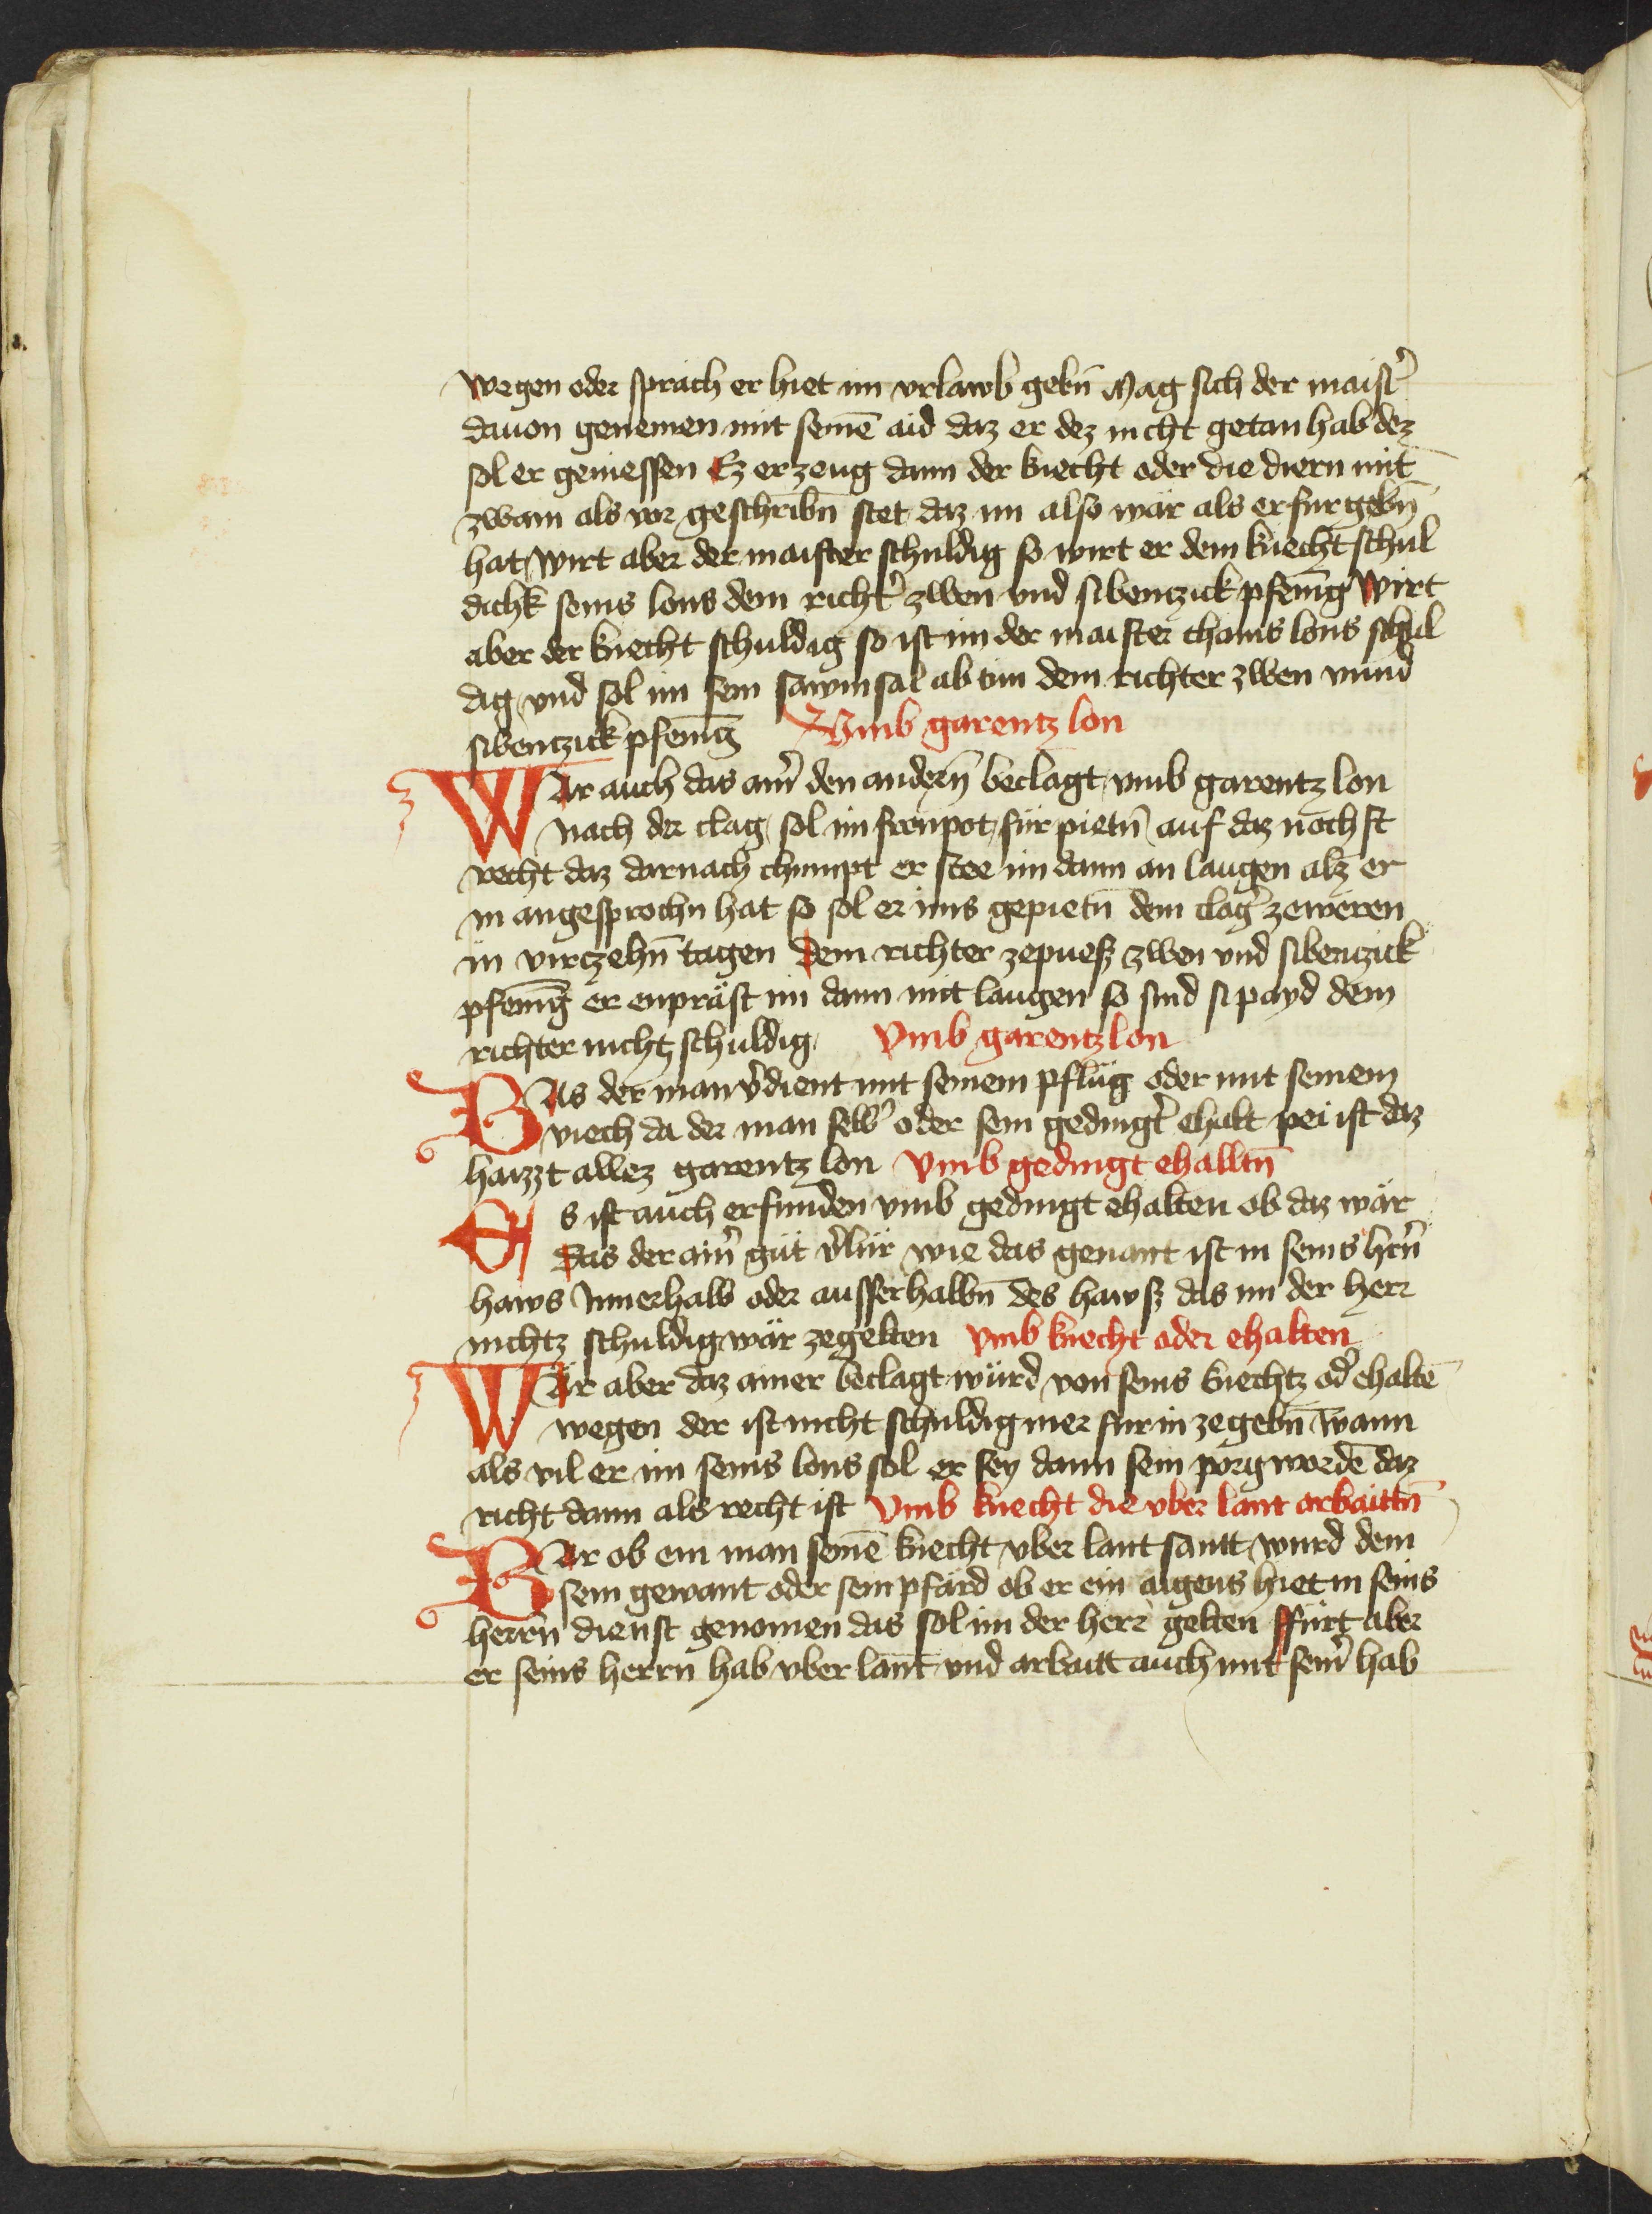 wegen oder sprach er hiet im vrlawb gebn̄ Mag sich der maist͛
dauon genemen mit seinē aid daz er dez nicht getan hab dez
sol er geniessen Ez erzeug dann der knecht oder die diern mit
zwain als vor geschribn̄ stet daz im also wär als er fürgebn̄
hat wirt aber der maister schuldig so wirt er dem knecht schul
dichk seins lons dem richt͛ zwen vnd sibentzick pfenīg wirt
aber der knecht schuldig so ist im der maister chains lons schul
dig vnd sol im sein sawmsal ab tun dem richter zwen vnnd
sibentzick pfenīg Vmb garentz lon
WAr auch das ain͛ den andern̄ beclagt vmb garentz lon
nach der clag sol im fronpot für pietn̄ auf daz nöchst
recht daz darnach chumpt er stee im dann an laugen alz er
in angesprochn hat so sol er ims gepietn̄ dem clag͛ zeweren
in virczehn̄ tagen dem richter zepuesz zwen vnd sibenczick
pfenīg er enpräst im dann mit laugen so sind si payd dem
richter nichtz schuldig Vmb garentz lon
WAs der man v͛dient mit seinem pflüg oder mit seinem
viech da der man selb͛ oder sein gedingt͛ ehalt pei ist daz
haizzt allez garentz lon Vmb gedingt ehalltn̄
Es ist auch erfunden vmb gedingt ehalten ob daz wär
das der ain͛ güt v͛lür wie das genant ist in seins hrn̄
haws Innerhalb oder ausserhalbn̄ des hawsz das im der herr
nichtz schuldig wär zegelten Vmb knecht oder ehalten
WÄr aber daz ainer beclagt würd von seins knechtz od͛ ehaltē
wegen der ist nicht schuldig mer für in zegebn̄ wann
als vil er im seins lons sol er sey dann sein porg wordē daz
richt dann als recht ist Vmb knecht die vber lant arbaittn̄
WAr ob ein man seinē knecht vber lant santt wurd dem
sein gewant oder sein pfärd ob er ein aigens hiet in seins
herrn̄ dienst genomen das sol im der herr gelten ffürt aber
er seins herrn hab vber lant vnd arbaitt auch mit sein͛ hab